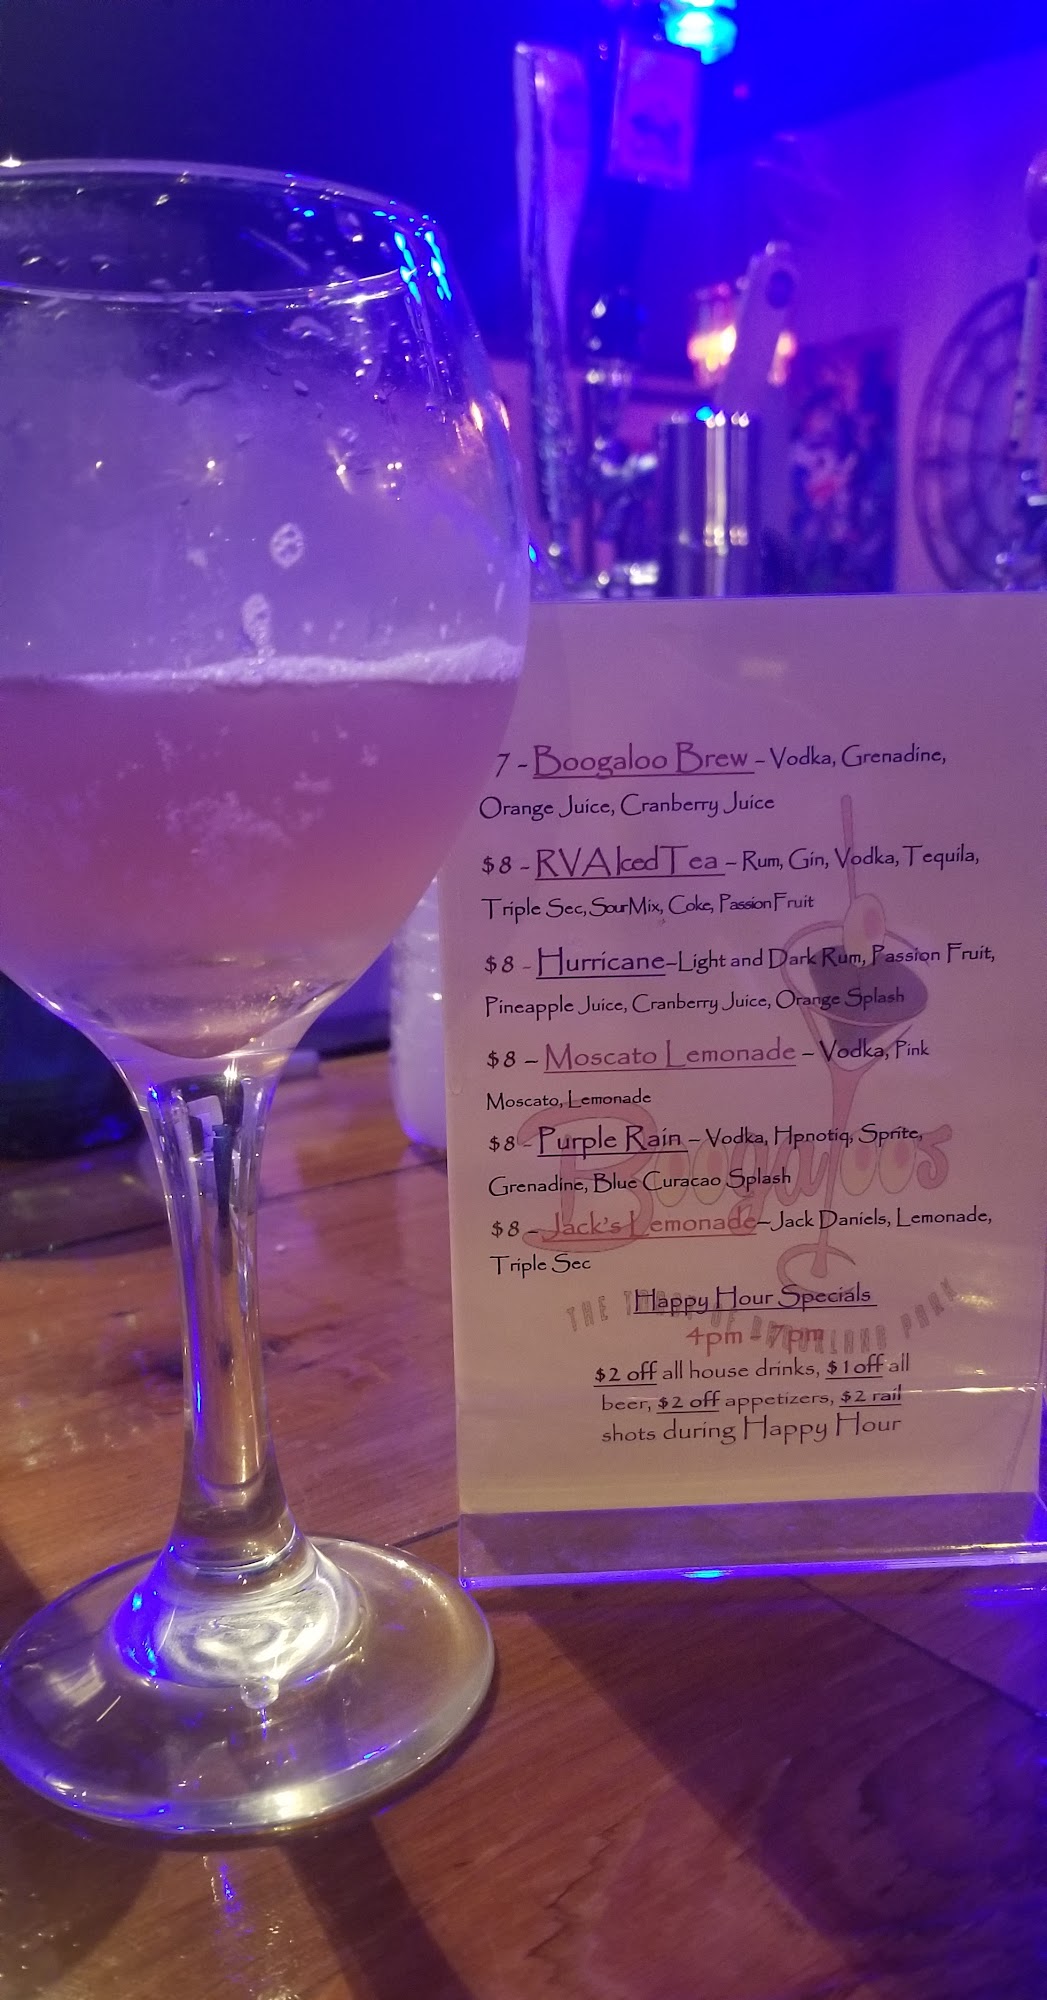 7 - Boogaloo Brew - Vodka, Grenadine,
Orange Juice, Cranberry Juice
$8 - RVA Iced Tea - Rum, Gin, Vodka, Tequila,
Triple Sec, Sour Mix, Coke, Passion Fruit
$8 - Hurricane-Light and Dark Rum, Passion Fruit,
Pineapple Juice, Cranberry Juice, Orange Splash
$8 - Moscato Lemonade - Vodka, Pink
Moscato, Lemonade
$8 - Purple Rain - Vodka, Hpnotiq, Sprite,
Grenadine, Blue Curacao Splash
Boogaloos
$8 - Jack's Lemonade-Jack Daniels, Lemonade,
Triple Sec
Happy Hour Specials
THE OF PARK
4pm - 7pm
$2 off all house drinks, $1 off all
beer, $2 off appetizers, $2 rail
shots during Happy Hour